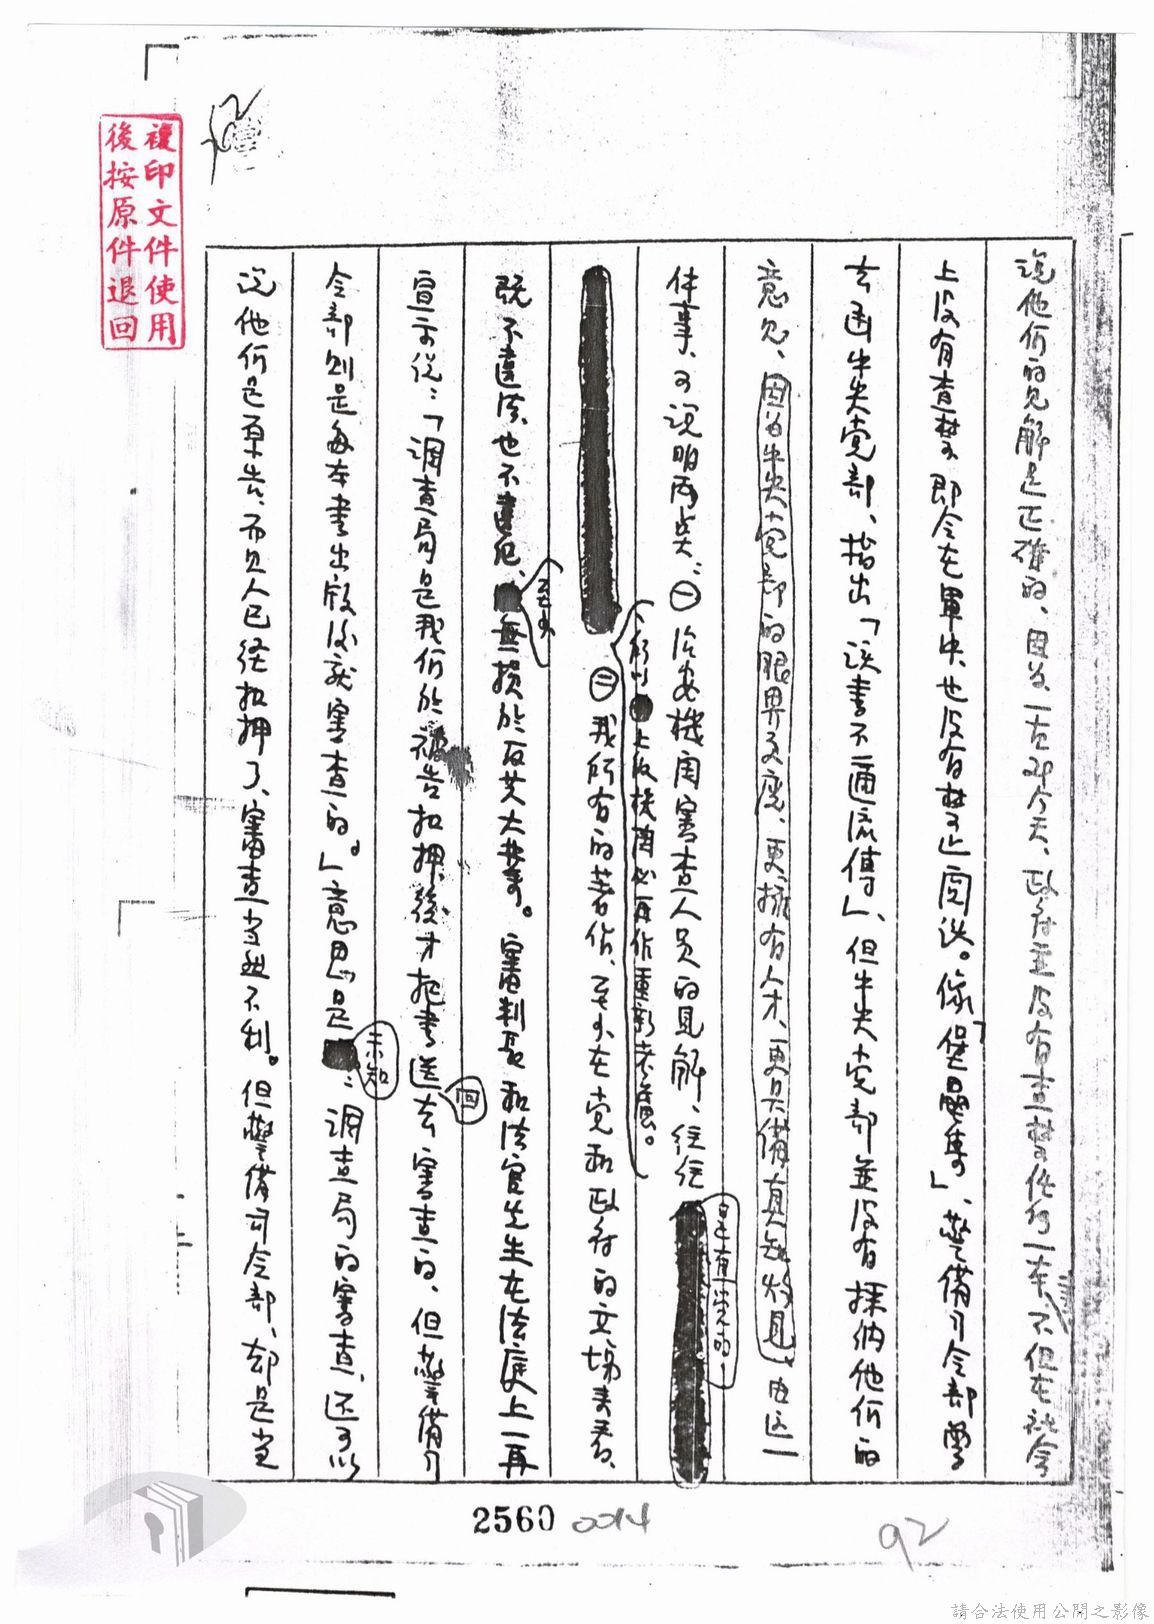 複印文件使用
後按原件退回
92
說他們的見解是正確的、因為、一直到今天、政府並沒有查禁任何一本、不但在社會
上沒有查禁、即令在軍中、也沒有禁止閱讀。像「堡壘集」、警備司令部曾
去函中央党部、指出「該書不適流傳」、但中央党部並沒有採納他們的
意見、因為中央党部的眼界更廣、更擁有人才、更具備真知灼見、由這一
件事、可說明兩点：㈠治安機関審查人員的見解、往往
是有一点的、
所以上級機関必再作重新考慮。
㈡我所有的著作、至少在党和政府的立場來看、
既不違法、也不違犯、無損於反共大業。審判長和法官先生在法庭上一再
至少
宣示說：「調查局是我們於被告扣押後才把書送去審查的、但警備司
回
令部則是每本書出版後就審查的。」意思是：調查局的審查、還可以
未知
說他們是原告、而且人已經扣押了、審查當然不利。但警備司令部、却是當
2560 0014
92
請合法使用公開之影像